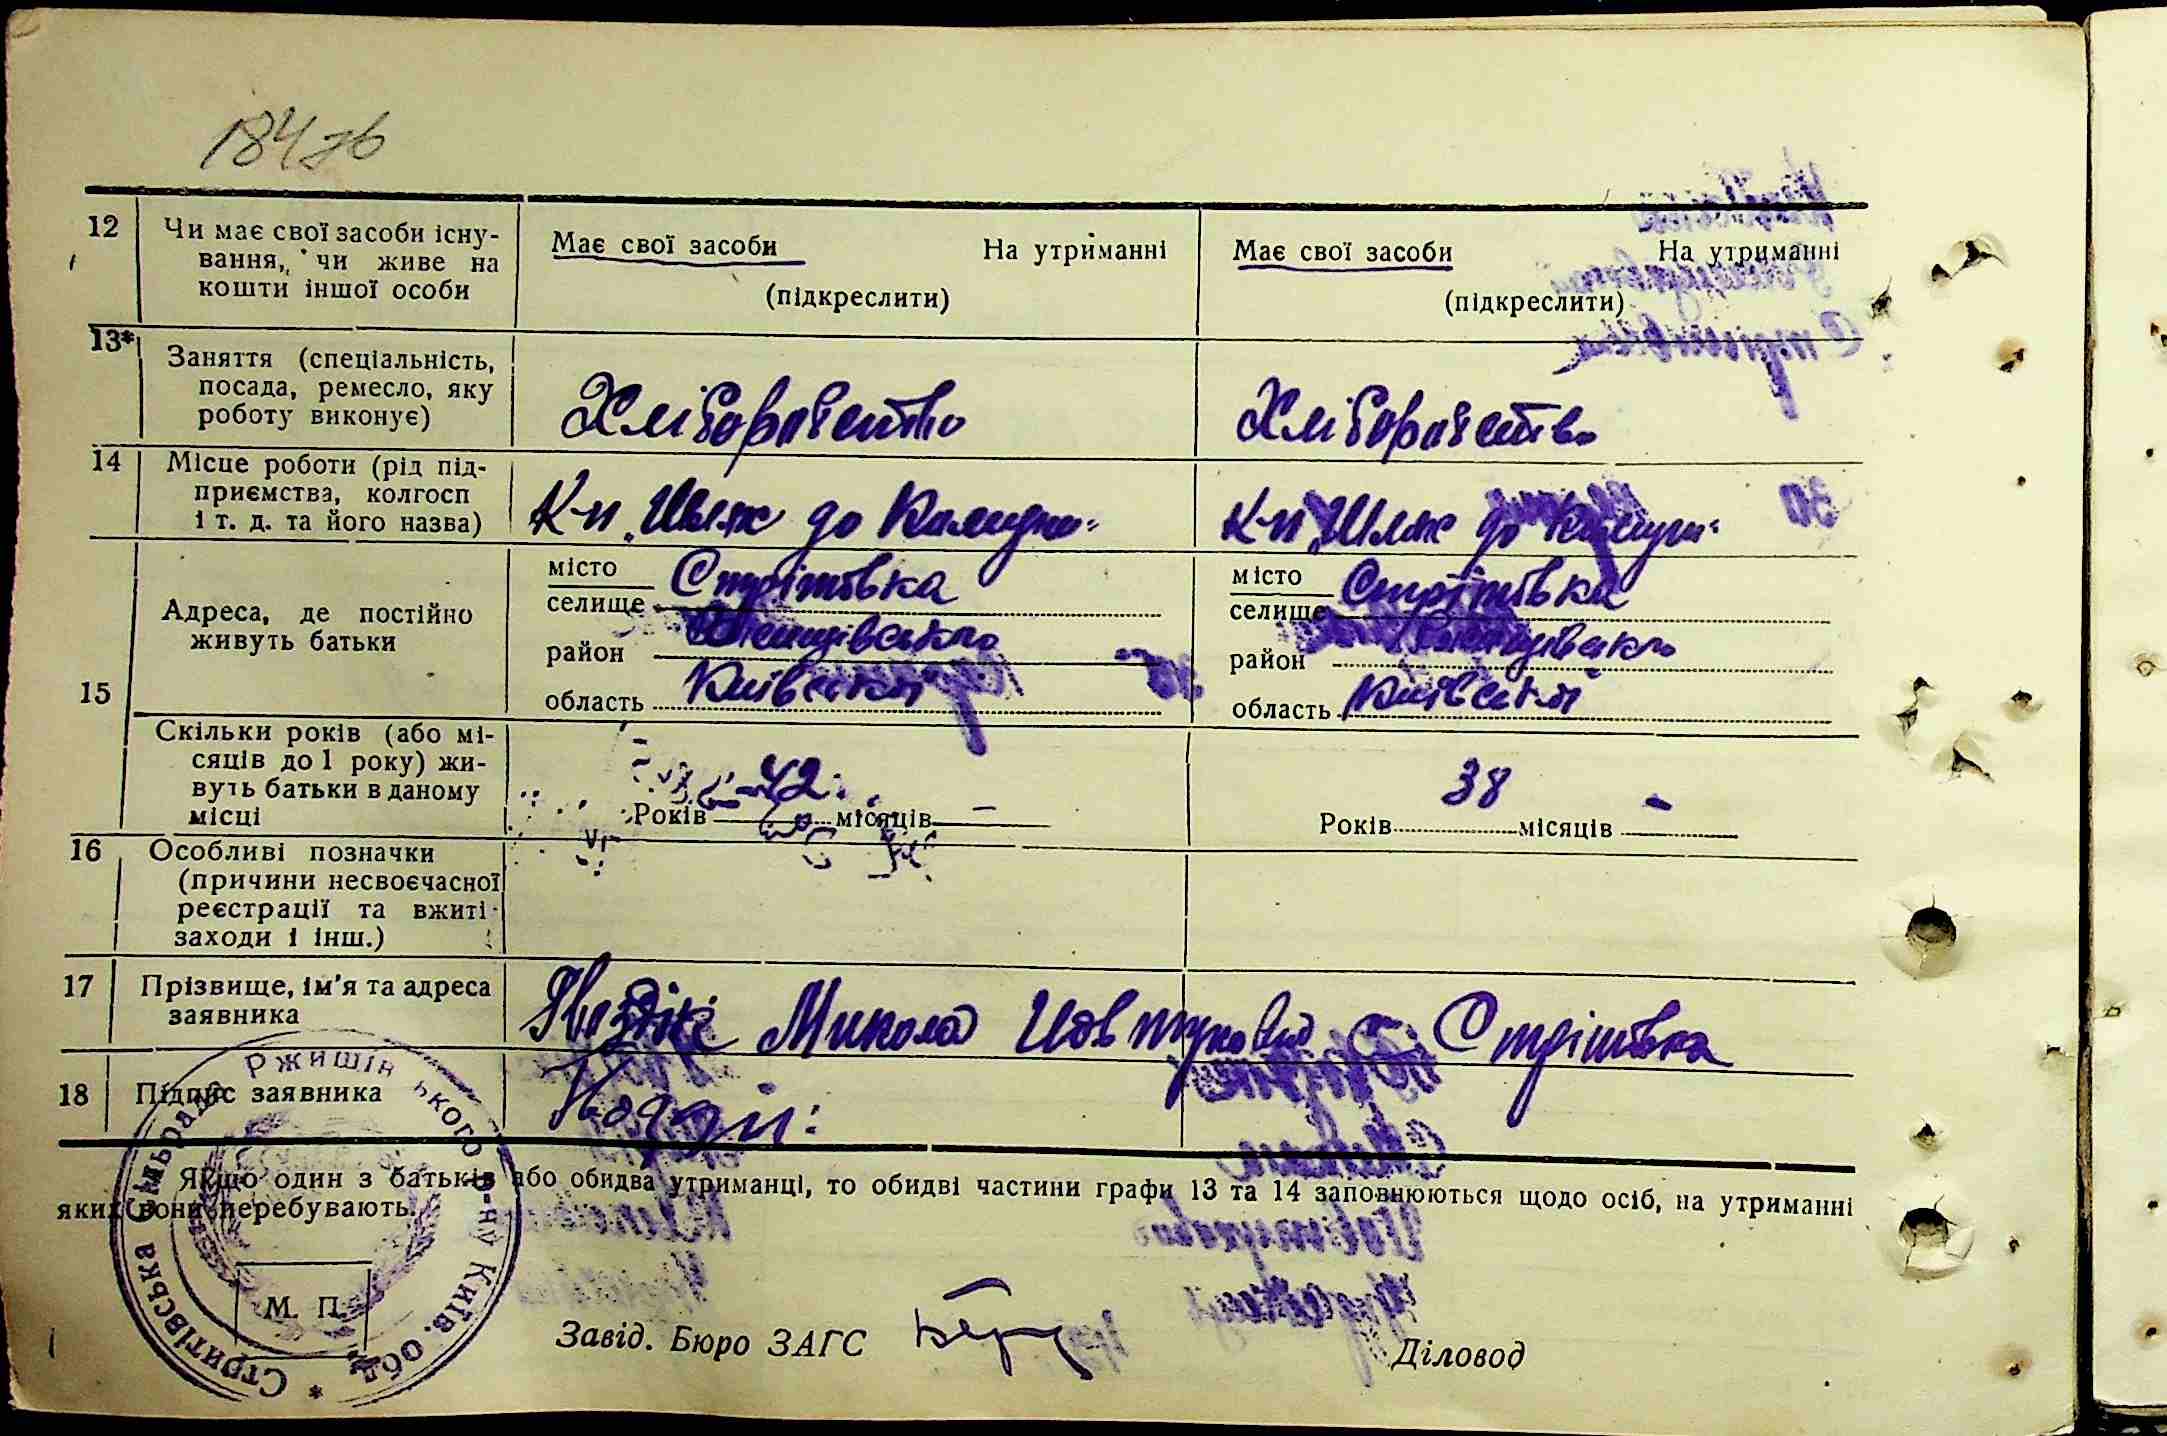 184зв
12 Чи має свої засоби існу-
вання, чи живе на
кошти іншої особи
Має свої засоби На утриманні
(підкреслити)
Має свої засоби На утриманні
(підкреслити)
13* Заняття (спеціальність,
посада, ремесло, яку
роботу виконує)
Хліборобство
Хліборобство
14 Місце роботи (рід під-
приємства, колгосп
і т. д. та його назва)
К-п „Шлях до Комуни“
К-п „Шлях до Комуни“
15 Адреса, де постійно
живуть батьки
місто
селище Стрітовка
район
область Київської
місто
селище Стрітовка
район
область Київської
Скільки років (або мі-
сяців до 1 року) жи-
вуть батьки в даному
місці
42
Років місяців —
38
Років місяців —
16 Особливі позначки
(причини несвоєчасної
реєстрації та вжиті
заходи і інш.)
17 Прізвище, ім'я та адреса
заявника
Микола с. Стрітовка
18 Підпис заявника
Якщо один з батьків або обидва утриманці, то обидві частини графи 13 та 14 заповнюються щодо осіб, на утриманні
яких вони перебувають.
Стритівська сільрада Ржищівського р-ну Київ. обл. *
М. П.
Завід. Бюро ЗАГС
Діловод